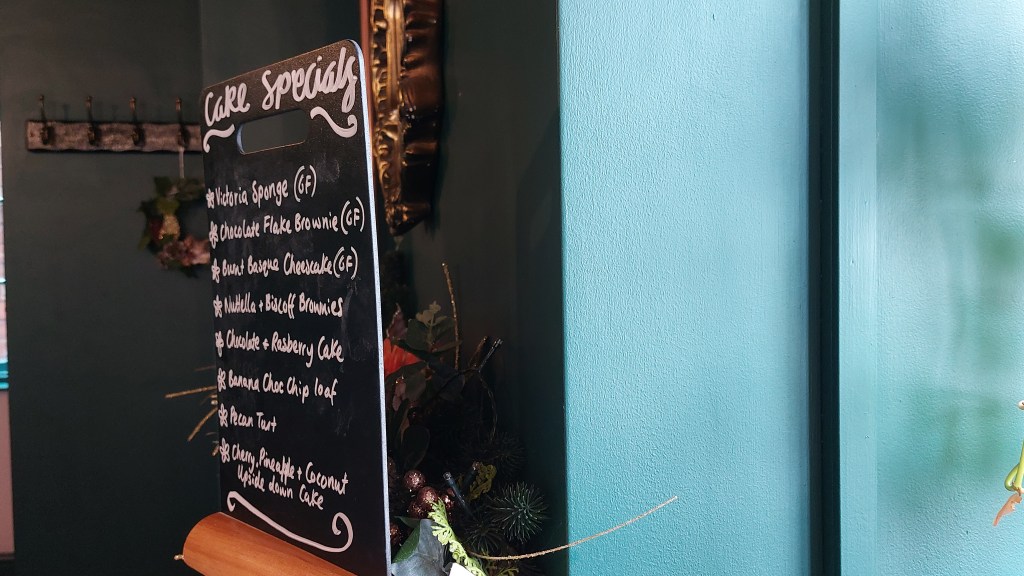 Cake Specials
Victoria Sponge (GF)
Chocolate Flake Brownie (GF)
Burnt Basque Cheescake (GF)
Nuttella + Biscoff Brownies
Chocolate + Rasberry Cake
Banana Choc Chip loaf
Pecan Tart
Cherry, Pineapple + Coconut
Upside down Cake